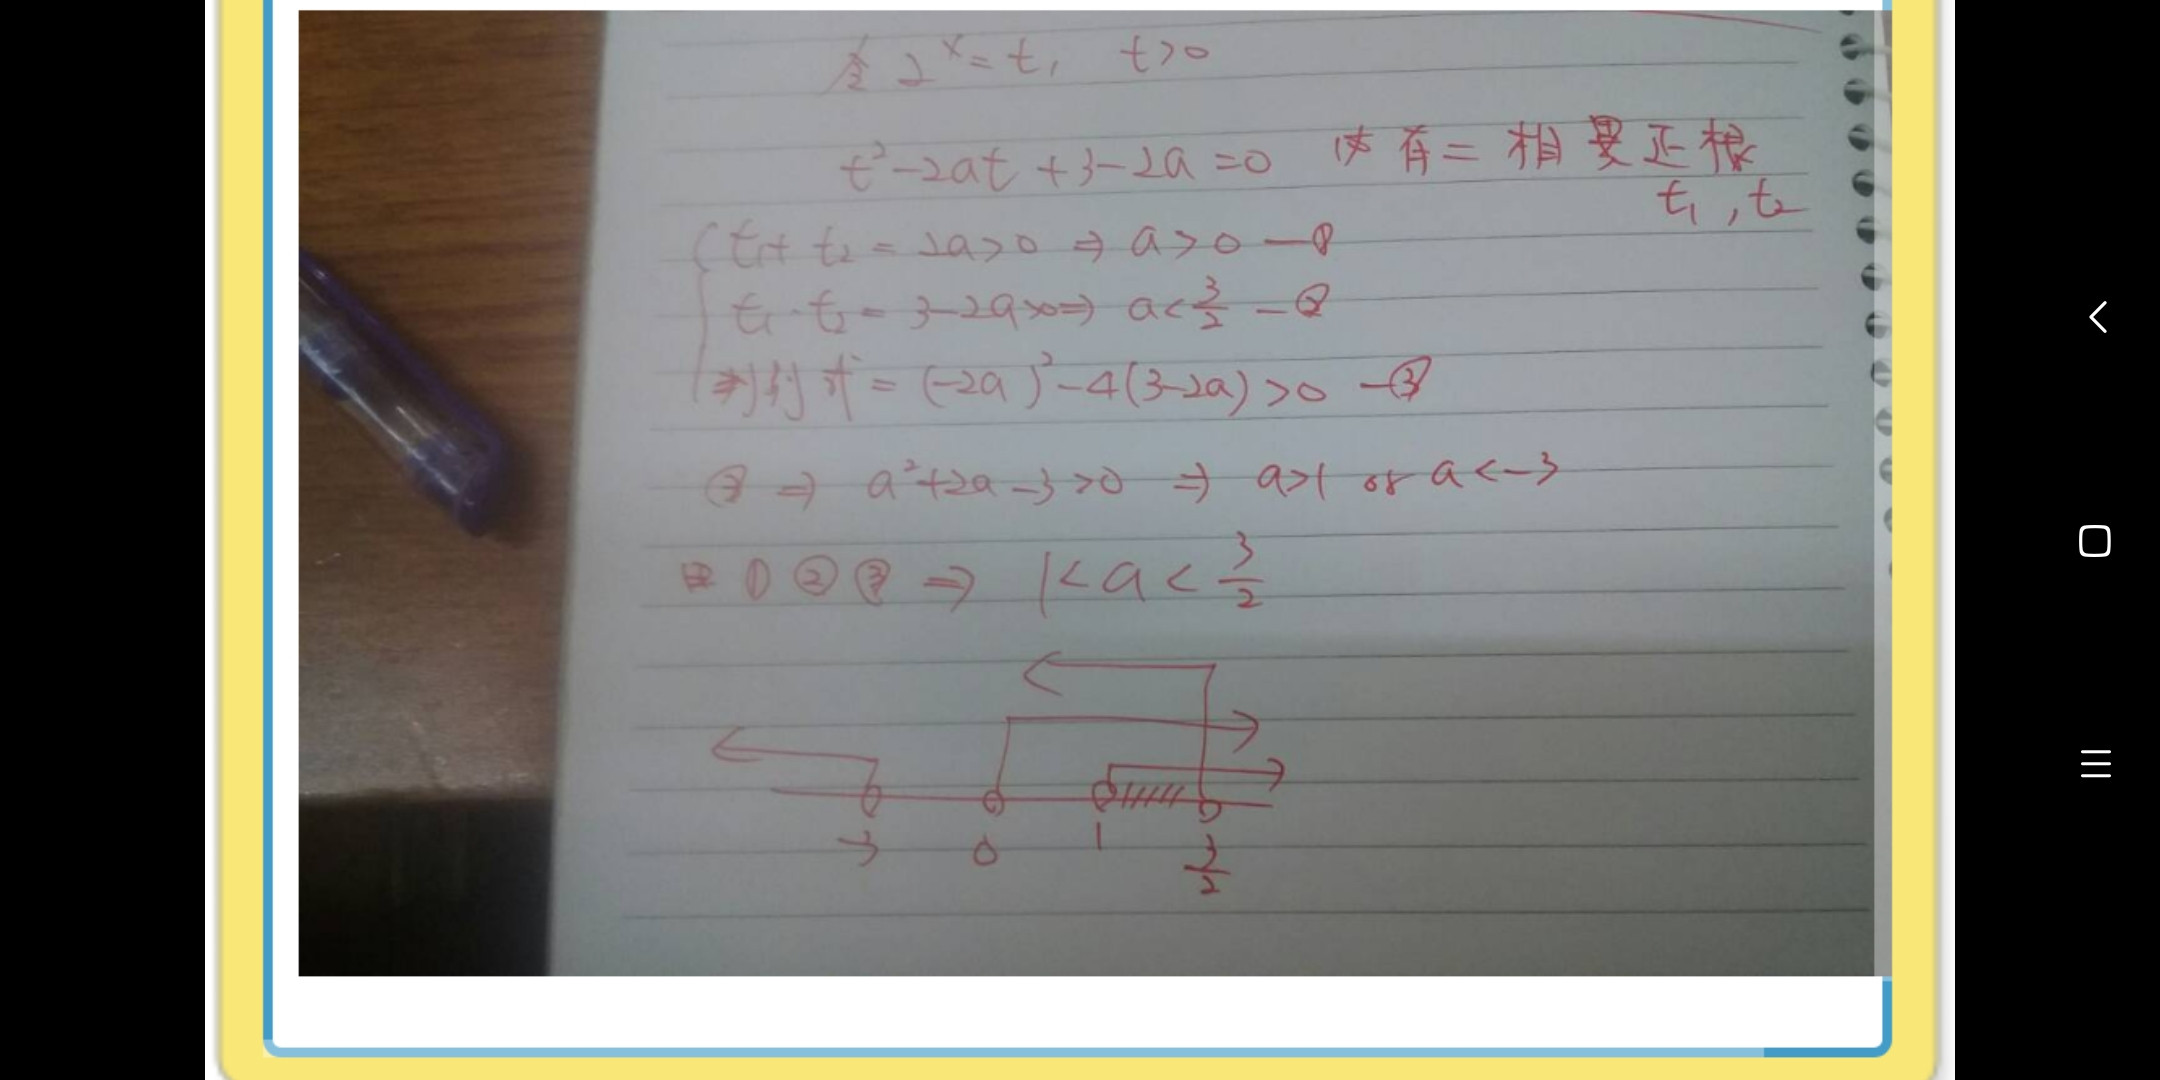 令 2^x = t, t>0
t²-2at+3-2a=0 必有二相異正根
t₁, t₂
t₁+t₂=2a>0 ⇒ a>0 —①
t₁·t₂=3-2a>0 ⇒ a<3/2 —②
判別式=(-2a)²-4(3-2a)>0 —③
③ ⇒ a²+2a-3>0 ⇒ a>1 or a<-3
由 ① ② ③ ⇒ 1<a<3/2
-3 0 1 3/2